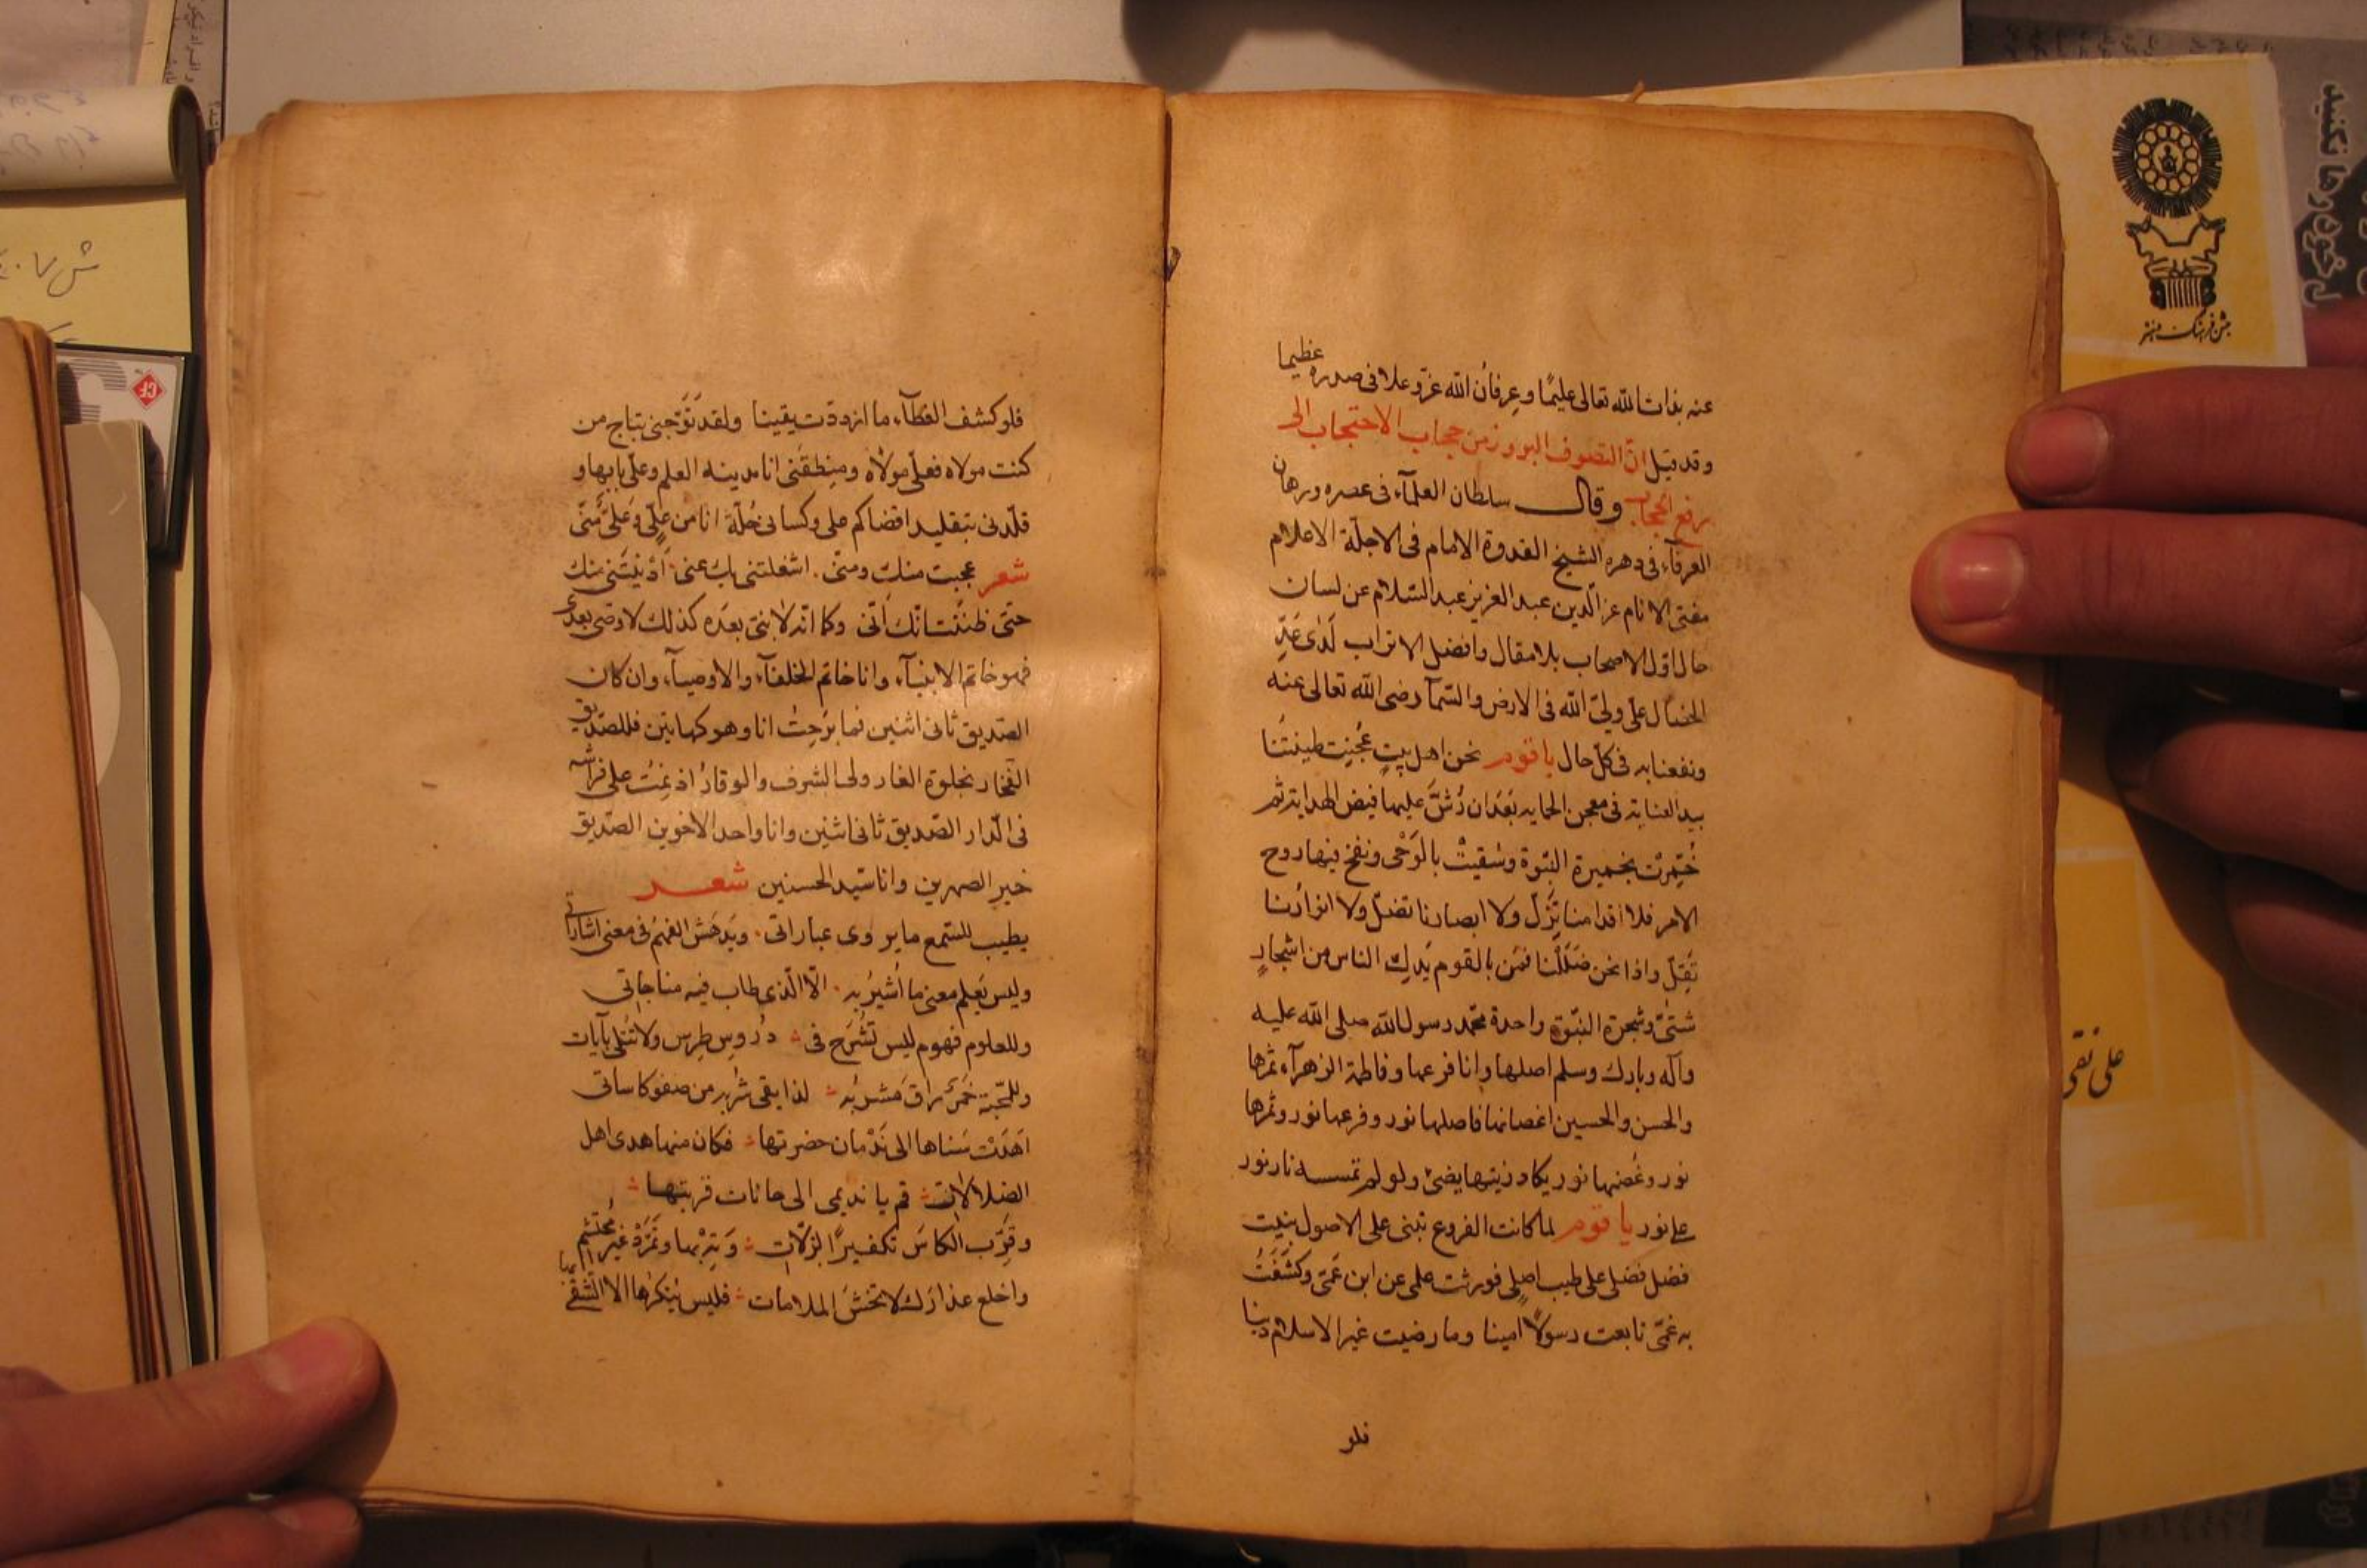 عظيما
عنه بذات الله تعالى عليمًا وعِرفانُ الله عزّ وعلا فى صدره
وقد قيل انّ التصوف البروز من حجاب الاحتجاب الى
رفع الحجاب وقال سلطان العلمآء فى عصره وبرهان
العرفآء فى دهره الشيخ القدوة الامام فى الاجلّة الاعلام
مفتى الانام عز الّدين عبد العزيز عبد السّلام عن لسان
حال اوّل الاصحاب بلا مقال وافضل الاتراب لَدٰى عَدِّ
الخصال علىّ ولىّ الله فى الارض والسّمآ رضى الله تعالى عنه
ونفعنا به فى كلّ حال يا قوم نحن اهل بيتٍ عُجِنِت طينتُنا
بيد العناية فى معجن الحمايه بَعْدَ ان رُشَّ عليها فيض الهداية ثم
خُمِّرتْ بخميرة النبّوة وسُقيتْ بالوَحْى ونفخ فيها روح
الامر فلا اقدامنا تَزِلّ ولا ابصارنا تضلّ ولا انوارُنا
تَقِلّ واذا نحن ضَلَلْنا فمَن بالقوم يَدِلّ الناس من اشجارٍ
شتىّٰ وشجرة النبّوة واحدة محّمد رسول الله صلى الله عليه
وآله وبارك وسلم اصلها وانا فرعها وفاطمة الزهرآء ثمرها
والحسن والحسين اغصانها فاصلها نور وفرعها نور وثمرها
نور وغُصنها نور يكاد زيتها يضئ ولو لم تمسسه نار نور
على نور يا قوم لما كانت الفروع تبنى على الاصول بنيت
فصل فضلى على طيب اصلى فورثت علمى عن ابن عَمّى وكشَفَتُ
به غمّى تابعت رسولًا امينا وما رضيت غير الاسلام دينا
فلو
فلو كشف الغطآء ما ازددت يقينا ولقد تَوَّجنى بتاج من
كنت مولاه فعلّى مولاه ومنطقَنى انا مدينه العلم وعلى بابها و
قلّدنى بتقليد اقضاكم على وكسانى حُلّة انا من علىّ وعلىّ مِنّى
شعر عجبت منك ومنّى . اشغلتنى بك عنى . اَدْنَيْتَنى منك
حتى ظنَنْت انّك اَنّى وكما انّه لا نبىّ بعدَه كذلك لا وصى بعدى
فهو خاتم الانبيآء وانا خاتم الخلفآء والاوصيآء وان كان
الصّديق ثانى اثنين فما بَرَحِتُ انا وهو كهاتين فللصدّيق
الفخار بخلوة الغار ولى الشرف والوقارُ اذ نِمْتُ على فراشه
فى الّدار الصّديق ثانى اثنين وانا واحد الاخوين الصّديق
خير الصهرين وانا سّيد الحسنين شعر
يطيب للسّمع ما يروى عباراتى . ويَدهَشُ الفهمُ فى معنى اشاراتى
وليس يَعلم معنى ما اُشيرُ به . الّا الّذى طاب فيه مناجاتى
وللعلوم فهوم ليس تُشْرَح فى دُروس طِرس ولا تُتلى بآيات
وللمحبّة خَمرٌ راق مَشربُه لذا بقى شربه من صفو كاساتى
اَهدَتْ سَناها الى نَدْمان حضرتها فكان منها هدى اهل
الضلالات قم يا نديمى الى حانات قربتها
وقَرِّب الكاسَ تكفيرًا لزلّات وَتِهْ بها وتَمَزَّدْ غيرُ محتشم
واخلع عذارَك لا تخشَ الملامات فليس يُنكرها الا الّشقى
علی نقی
جشن فرهنگ و هنر